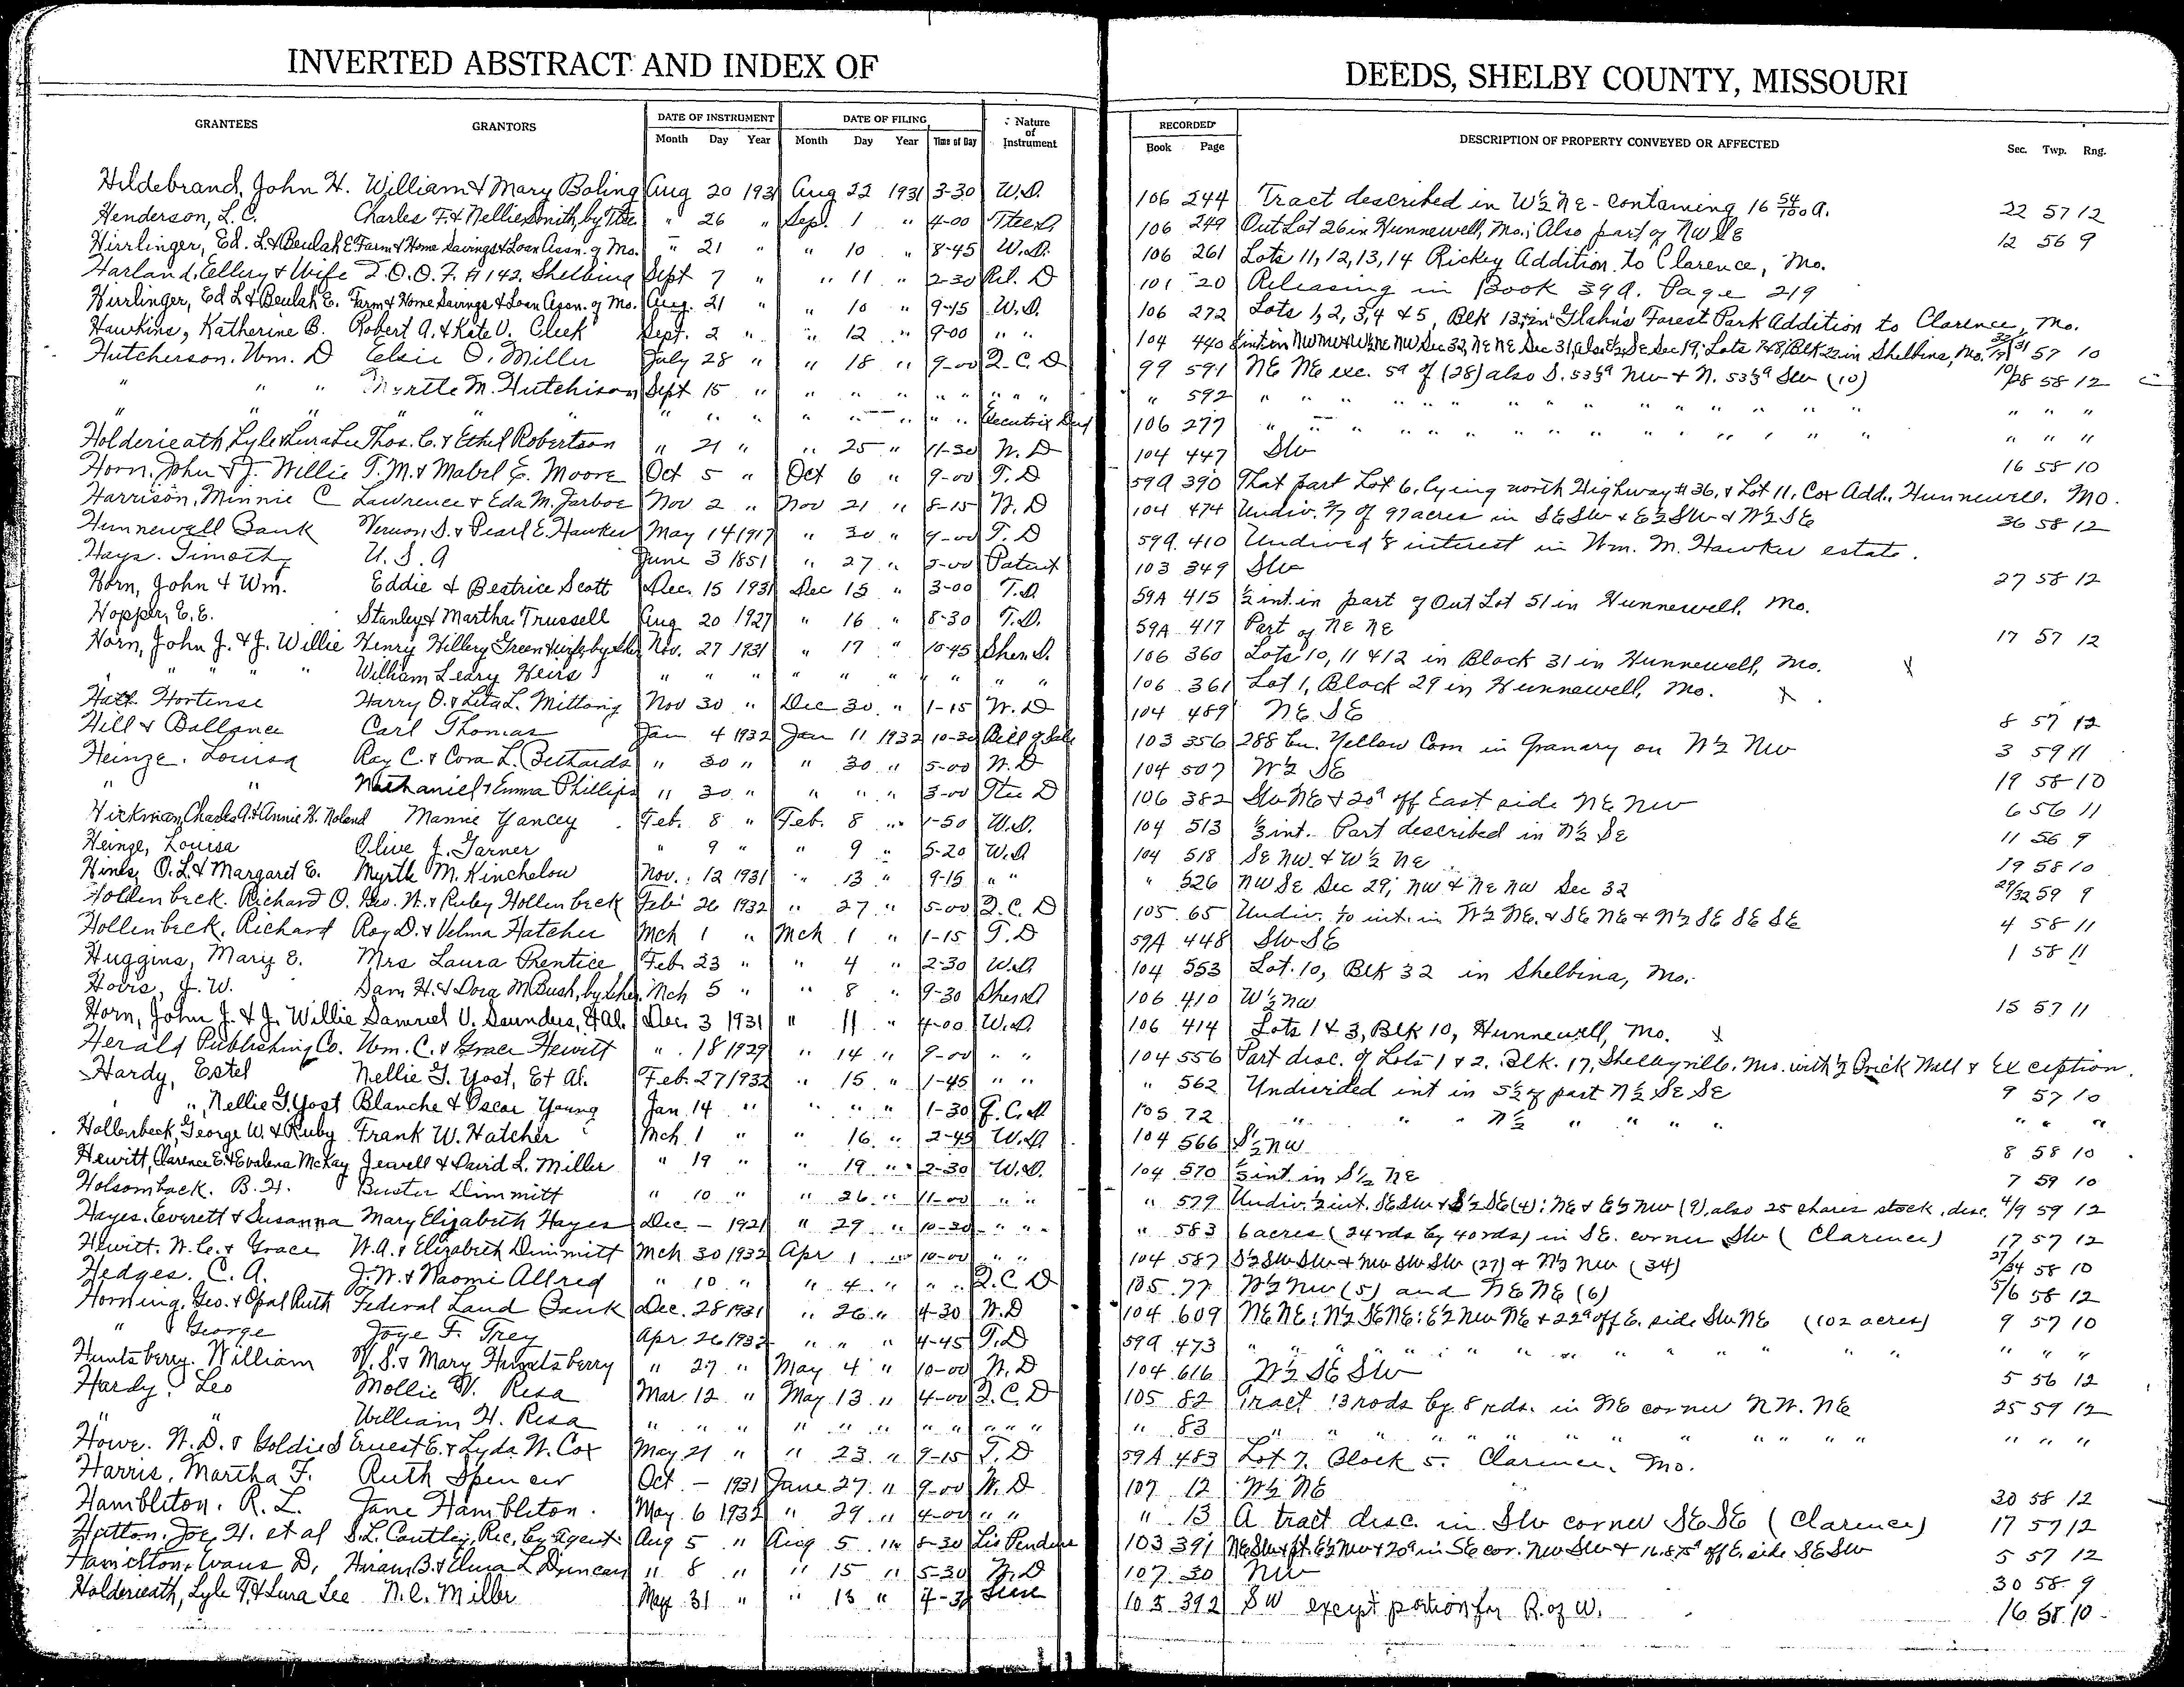 INVERTED ABSTRACT AND INDEX OF DEEDS, SHELBY COUNTY, MISSOURI
GRANTEES GRANTORS DATE OF INSTRUMENT DATE OF FILING Nature of Instrument RECORDED DESCRIPTION OF PROPERTY CONVEYED OR AFFECTED Sec. Twp. Rng.
Month Day Year Month Day Year Time of Day Book Page
Hildebrand, John H. William & Mary Boling Aug 20 1931 Aug 22 1931 3-30 W.D. 106 244 Tract described in W½ NE - containing 16 54/100 A. 22 57 12
Henderson, L.C. Charles F. & Nellie Smith, by Ttee " 26 " Sept. 1 " 4-00 Ttees D 106 249 Out Lot 26 in Hunnewell, Mo.; Also part of NW SE 12 56 9
Hirrlinger, Ed. L. & Beulah E. Farm & Home Savings & Loan Assn. of Mo. " 21 " " 10 " 8-45 W.D. 106 261 Lots 11, 12, 13, 14 Rickey Addition to Clarence, Mo.
Harland, Ellery & Wife I.O.O.F. # 142, Shelbina Sept 7 " " 11 " 2-30 Rel. D 101 20 Releasing in Book 39A. Page 219
Hirrlinger, Ed L & Beulah E. Farm & Home Savings & Loan Assn. of Mo. Aug. 21 " " 10 " 9-15 W.D. 106 272 Lots 1, 2, 3, 4 & 5, Blk 13, in Glahn's Forest Park Addition to Clarence, Mo.
Hawkins, Katherine B. Robert A. & Kate V. Cleek Sept. 2 " " 12 " 9-00 " " 104 440 int in NW NW & W½ NE NW Sec 32, NE NE Sec 31, also E½ SE Sec 19; Lots 7 & 8, Blk 22 in Shelbina, Mo. 57 10
Hutcherson, Wm. D Elsie O. Miller July 28 " " 18 " 9-00 Q.C.D 99 591 NE NE exc. 5a of (28) also S. 53⅓a NW & N. 53⅓a SW (10) 10/28 58 12
" " " Myrtle M. Hutchison Sept 15 " " " " " " " " " " 592 " " " " " " " " " " " "
" " " " " " " " " " " Executrix Deed 106 277 " " " " " " " " " " " "
Holderieath, Lyle & Lura Lee Thos. C. & Ethel Robertson " 21 " " 25 " 11-30 W.D 104 447 SW 16 58 10
Horn, John & J. Willie T.M. & Mabel E. Moore Oct 5 " Oct 6 " 9-00 T.D 59A 390 That part Lot 6, lying north Highway # 36, & Lot 11, Cox Add., Hunnewell, Mo.
Harrison, Minnie C Lawrence & Eda M. Jarboe Nov 2 " Nov 21 " 8-15 W.D 104 474 Undiv. 2/7 of 97 acres in SE SW & E½ SW & W½ SE 36 58 12
Hunnewell Bank Vernon S. & Pearl E. Hawker May 14 1917 " 30 " 9-00 T.D 59A 410 Undived ⅛ interest in Wm. M. Hawker estate.
Hays, Timothy U.S.A June 3 1851 " 27 " 5-00 Patent 103 349 SW 27 58 12
Horn, John & Wm. Eddie & Beatrice Scott Dec. 15 1931 Dec 15 " 3-00 T.D. 59A 415 ½ int. in part of Out Lot 51 in Hunnewell, Mo.
Hopper, E.E. Stanley & Martha Trussell Aug 20 1927 " 16 " 8-30 T.D. 59A 417 Part of NE NE 17 57 12
Horn, John J. & J. Willie Henry Hillery Green & wife, by Sher. Nov. 27 1931 " 17 " 10-45 Sher D. 106 360 Lots 10, 11 & 12 in Block 31 in Hunnewell, Mo. x
" " " " William Leary Heirs " " " " " " " " " 106 361 Lot 1, Block 29 in Hunnewell, Mo. x
Hatt Hortense Harry O. & Leta L. Mittong Nov 30 " Dec 30 " 1-15 W.D 104 489 NE SE 8 57 12
Hill & Ballance Carl Thomas Jan 4 1932 Jan 11 1932 10-30 Bill of Sale 103 356 288 bu. Yellow Corn in Granary on W½ NW 3 59 11
Heinze, Louisa Ray C. & Cora L. Bethards " 30 " " 30 " 5-00 W.D 104 507 W½ SE 19 58 10
" " Nathaniel & Emma Phillips " 30 " " " " 3-00 Ttee D 106 382 SW NE & 20a off East side NE NW 6 56 11
Hickman, Charles A. & Annie H. Noland Mannie Yancey Feb. 8 " Feb. 8 " 1-50 W.D. 104 513 ⅓ int. Part described in N½ SE 11 56 9
Heinze, Louisa Olive J. Garner " 9 " " 9 " 5-20 W.D 104 518 SE NW. & W½ NE 19 58 10
Hines, O.L. & Margaret E. Myrtle M. Kinchelow Nov. 12 1931 " 13 " 9-15 " " " 526 NW SE Sec 29; NW & NE NW Sec 32 29/32 59 9
Hollenbeck, Richard O. Geo. W. & Ruby Hollenbeck Feb 26 1932 " 27 " 5-00 Q.C.D 105 65 Undiv. int. in W½ NE. & SE NE & N½ SE SE SE 4 58 11
Hollenbeck, Richard Roy D. & Velma Hatcher Mch 1 " Mch 1 " 1-15 T.D 59A 448 SW SE 1 58 11
Huggins, Mary E. Mrs Laura Prentice Feb. 23 " " 4 " 2-30 W.D. 104 553 Lot 10, Blk 32 in Shelbina, Mo.
Hovis, J.W. Sam H. & Dora M Bush, by Sher. Mch 5 " " 8 " 9-30 Sher D 106 410 W½ NW 15 57 11
Horn, John J. & J. Willie Samuel V. Saunders, Et Al. Dec. 3 1931 " 11 " 4-00 W.D. 106 414 Lots 1 & 3, Blk 10, Hunnewell, Mo. x
Herald Publishing Co. Wm. C. & Grace Hewitt " 18 1929 " 14 " 9-00 " " 104 556 Part desc. of Lots 1 & 2, Blk. 17, Shelbyville, Mo. with ½ Brick Wall & Exception.
Hardy, Estel Nellie G. Yost, Et Al. Feb. 27 1932 " 15 " 1-45 " " " 562 Undivided int in 5½ of part N½ SE SE 9 57 10
" ", Nellie G. Yost Blanche & Oscar Young Jan 14 " " " " 1-30 Q.C.D 105 72 " " " N½ " " " " " "
Hollenbeck, George W. & Ruby Frank W. Hatcher Mch 1 " " 16 " 2-45 W.D 104 566 S½ NW 8 58 10
Hewitt, Clarence E. & Evalena McKay Jewell & David L. Miller " 19 " " 19 " 2-30 W.D. 104 570 ⅓ int in S½ NE 7 59 10
Holsomback, B.H. Buster Dimmitt " 10 " " 26 " 11-00 " " " 579 Undiv. ½ int. SE SW & S½ SE (4); NE & E½ NW (9), also 25 shares stock, desc. 4/9 59 12
Hayes, Everett & Susanna Mary Elizabeth Hayes Dec - 1921 " 29 " 10-30 " " " 583 6 acres (24 rds by 40 rds) in SE. corner SW (Clarence) 17 57 12
Hewitt, W.C. & Grace W.A. & Elizabeth Dimmitt Mch 30 1932 Apr 1 " 10-00 " " 104 587 S½ SW SW & NW SW SW (27) & N½ NW (34) 27/34 58 10
Hedges, C.A. J.W. & Naomi Allred " 10 " " 4 " " " Q.C.D 105 77 W½ NW (5) and NE NE (6) 5/6 58 12
Horning, Geo. & Opal Ruth Federal Land Bank Dec. 28 1931 " 26 " 4-30 W.D 104 609 NE NE; N½ SE NE; E½ NW NE & 22a off E. side SW NE (102 acres) 9 57 10
" George Joye F. Frey Apr. 26 1932 " " " 4-45 T.D 59A 473 " " " " " " " " " " " "
Huntsberry, William V.S. & Mary Huntsberry " 27 " May 4 " 10-00 W.D 104 616 W½ SE SW 5 56 12
Hardy, Leo Mollie V. Resa Mar. 12 " May 13 " 4-00 Q.C.D 105 82 Tract 13 rods by 8 rds. in NE corner NW. NE 25 59 12
" " William H. Resa " " " " " " " " " " " " 83 " " " " " " " " " " " "
Howe, W.D. & Goldie S Ernest E. & Lyda W. Cox May 21 " " 23 " 9-15 T.D 59A 483 Lot 7, Block 5, Clarence, Mo.
Harris, Martha F. Ruth Spencer Oct. - 1931 June 27 " 9-00 W.D 107 12 W½ NE 30 58 12
Hambliton, R.L. Jane Hambliton. May 6 1932 " 29 " 4-00 " " " 13 A tract desc. in SW corner SE SE (Clarence) 17 57 12
Hutton, Joe H. et al S.L. Cantley, Rec, by Agent Aug 5 " Aug 5 " 8-30 Lis Pendens 103 391 NE SW & pt. E½ NW & 20a in SE cor. NW SW & 16.875a off E. side SE SW 5 57 12
Hamilton, Evans D, Hiram B. & Elma L Duncan " 8 " " 15 " 5-30 W.D 107 30 NW 30 58 9
Holderieath, Lyle T. & Lura Lee N.C. Miller May 31 " " 13 " 4-30 Lease 103 392 SW except portion for R. of W. 16 58 10